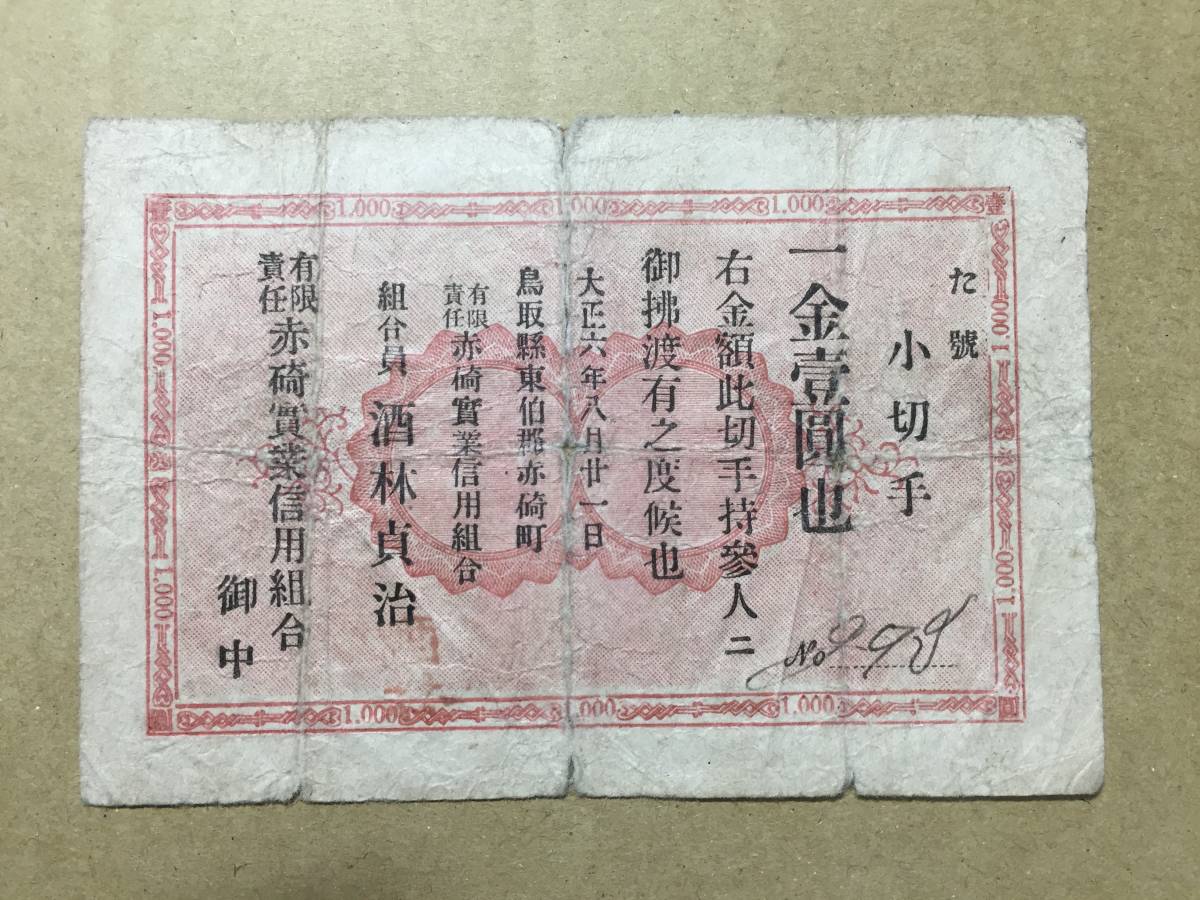 た號
小切手
一金壹圓也
右金額此切手持參人ニ
御拂渡有之度候也
大正六年八月廿一日
鳥取縣東伯郡赤碕町
有限責任赤碕實業信用組合
組合員 酒林貞治
有限責任赤碕實業信用組合
御中
No
1.000 1.000 1.000
1.000 1.000
1.000 1.000
1.000 1.000 1.000
壹 壹
圓 圓